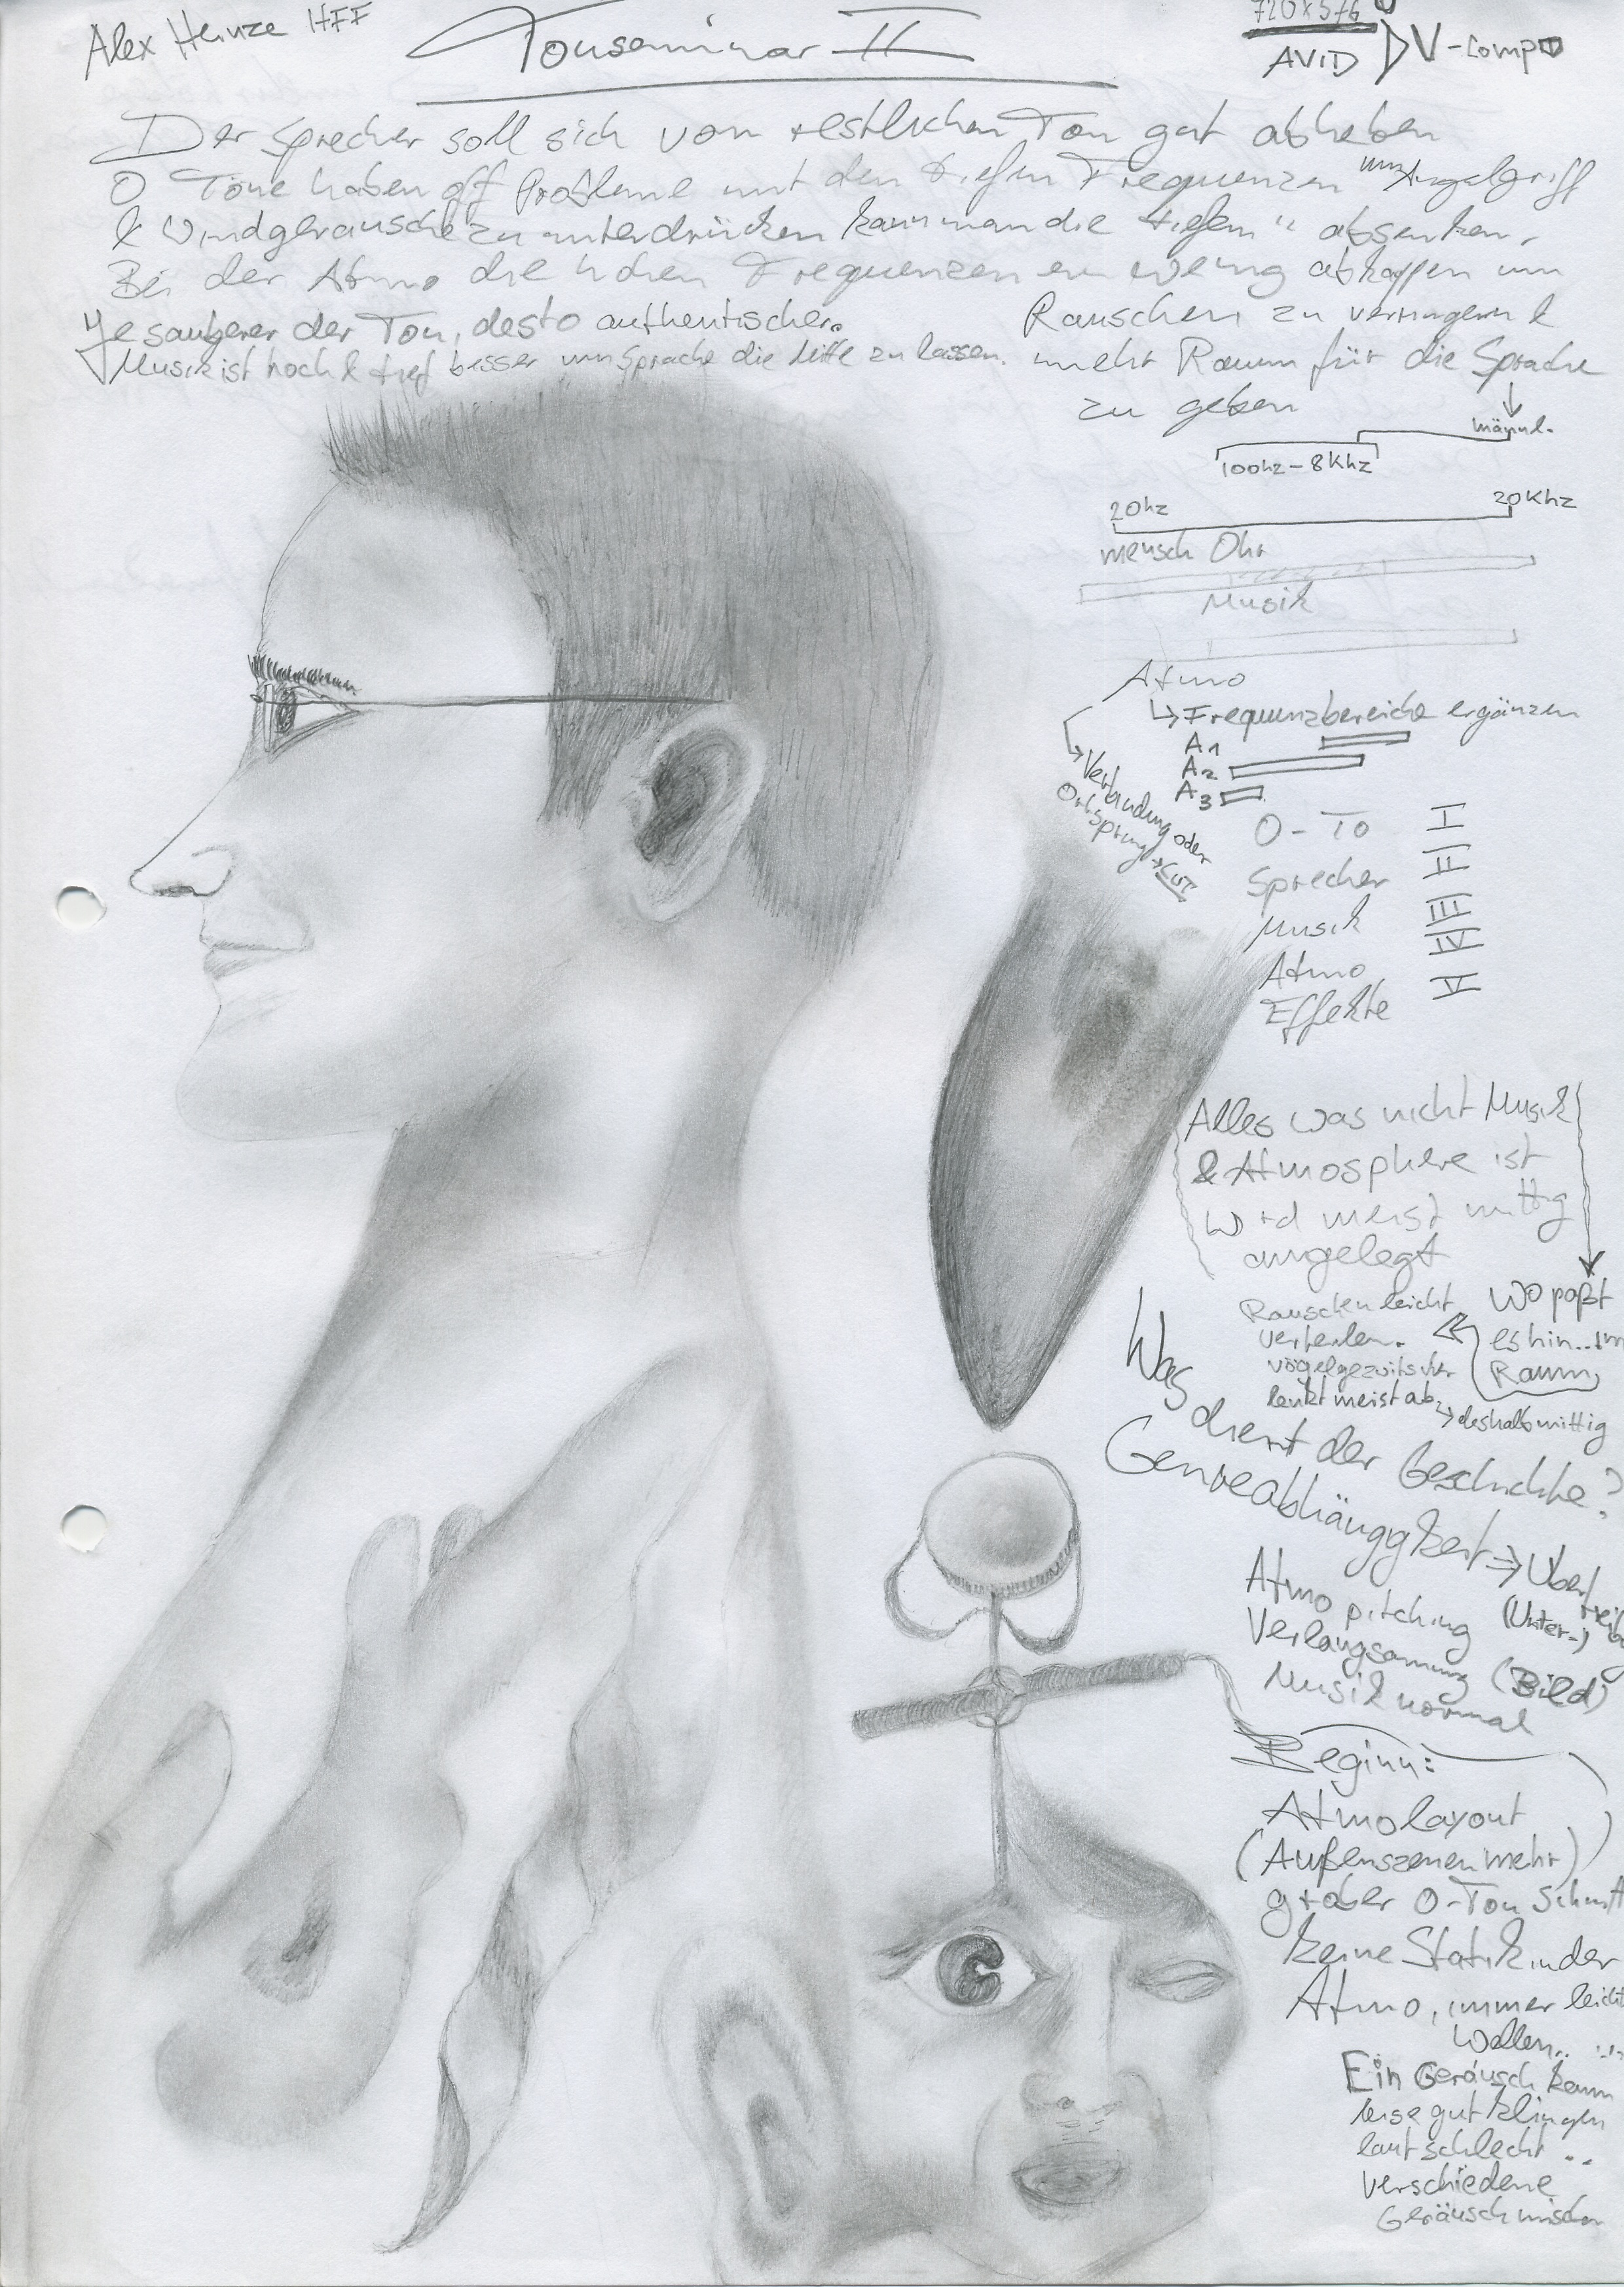 Alex Heinze HFF
Tonseminar II
720x576
AVID DV-Comp
Der Sprecher soll sich vom restlichen Ton gut abheben
O Töne haben oft Probleme mit den tiefen Frequenzen um Angelgriff
& Windgeräusche zu unterdrücken kann man die tiefen" absenken.
Bei der Atmo die hohen Frequenzen ein wenig abkappen um
Rauschen zu verringern &
mehr Raum für die Sprache
zu geben
Je sauberer der Ton, desto authentischer.
Musik ist hoch & tief besser um Sprache die Mitte zu lassen.
männl.
100hz-8Khz
20hz 20Khz
mensch Ohr
Musik
Atmo
↳ Frequenzbereiche ergänzen
A1
A2
A3
Verbindung oder
Ortsprung → CUT
O-To I
Sprecher II
Musik III
Atmo IV
Effekte V
Alles was nicht Musik
& Atmosphere ist
wird meist mittig
angelegt
Wo paßt
es hin... im
Raum
Rauschen leicht
verteilen.
vögelgezwitscher
lenkt meist ab
→ deshalb mittig
Was dient der Geschichte?
Genreabhängigkeit ⇒
(Unter-)
Atmo pitching
Verlangsamung (Bild)
Musik normal
Beginn:
Atmolayout
(Außenszenen mehr)
grober O-Ton Schnitt
keine Statik in der
Atmo, immer leicht
Wellen..
Ein Geräusch kann
leise gut klingen
laut schlecht ..
verschiedene
Geräusch mischen